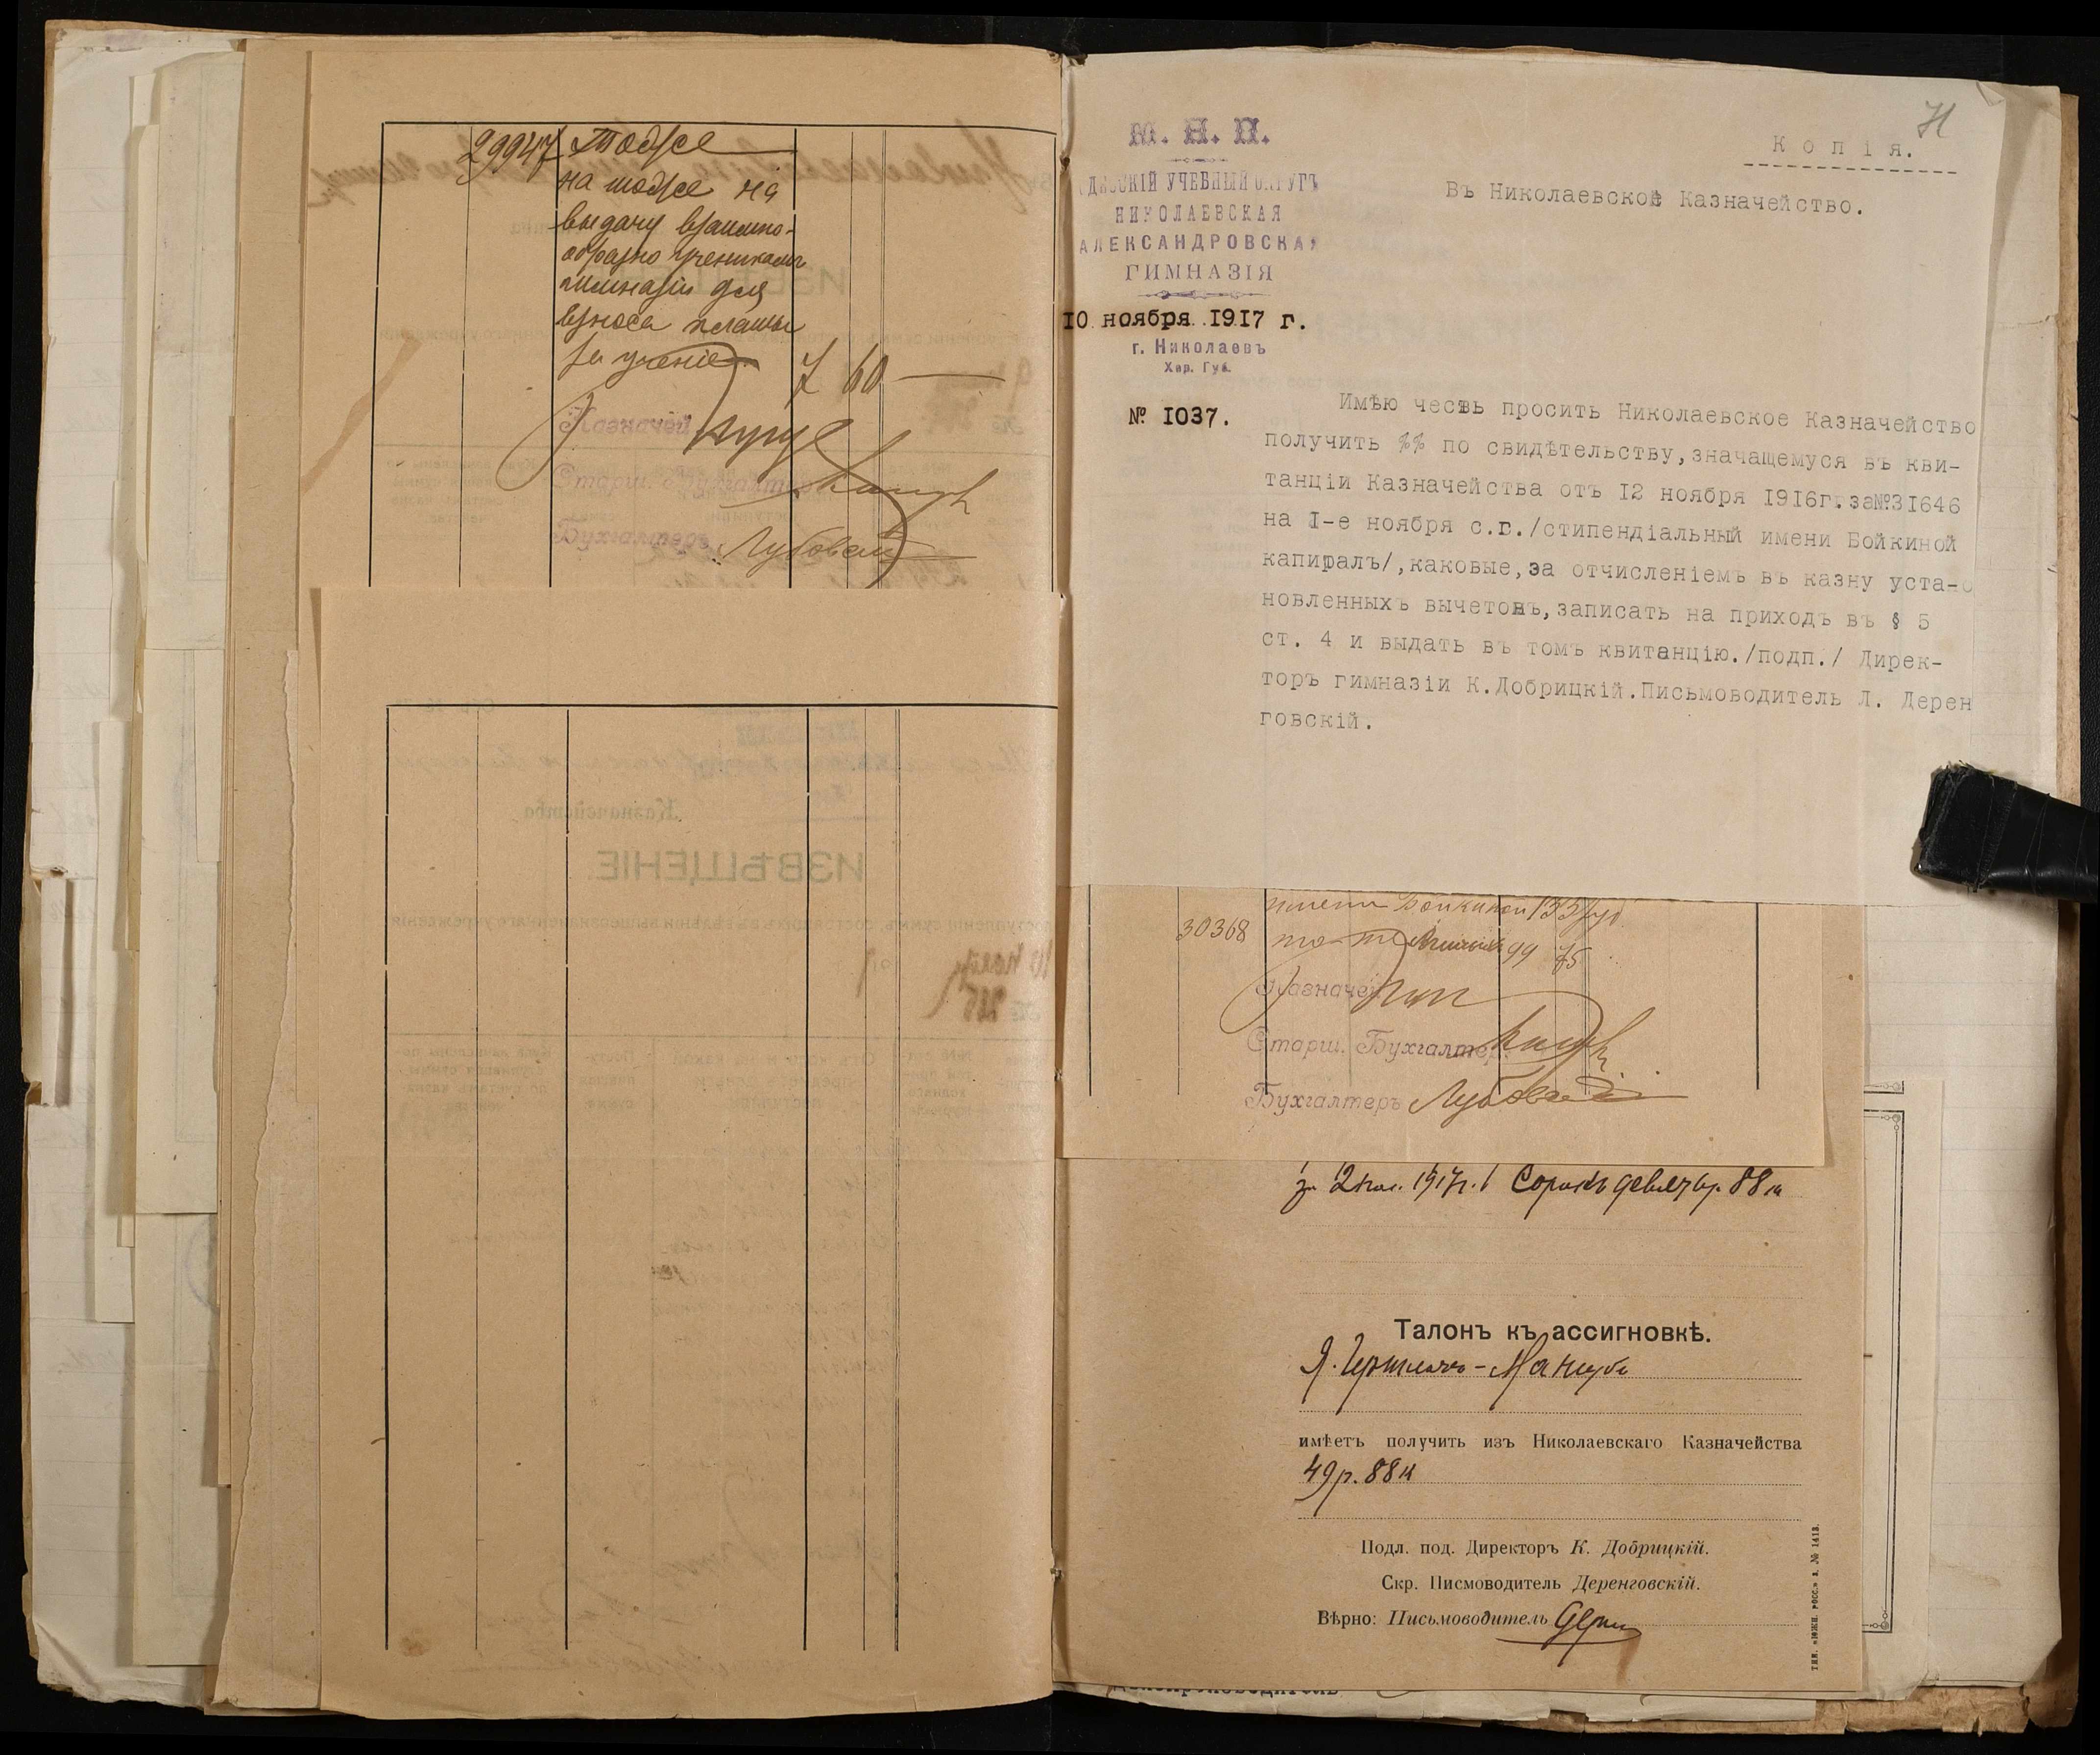 29947 Тоже
на тоже на
выдачу взаимно-
образно ученикамъ
гимназіи для
взноса платы
за ученіе 7 60 —
Казначей
Старш. Бухгалтер
Бухгалтеръ
ИЗВѢЩЕНІЕ.
Казначейства
71
Копія.
М. Н. П.
ОДЕССКІЙ УЧЕБНЫЙ ОКРУГЪ
НИКОЛАЕВСКАЯ
АЛЕКСАНДРОВСКАЯ
ГИМНАЗІЯ
10 ноября 1917 г.
г. Николаевъ
Хер. Губ.
№ 1037.
Въ Николаевское Казначейство.
Имѣю честь просить Николаевское Казначейство
получить %% по свидѣтельству,значащемуся въ кви-
танціи Казначейства отъ 12 ноября 1916г.за№31646
на 1-е ноября с.г./стипендіальный имени Бойкиной
капиталъ/,каковые,за отчисленіемъ въ казну уста-
новленныхъ вычетовъ,записать на приходъ въ § 5
ст. 4 и выдать въ томъ квитанцію./подп./ Дирек-
торъ гимназіи К.Добрицкій.Письмоводитель Л. Дерен
говскій.
имени Бойкиной 133 руб
30368 99 75
Казначей
Старш. Бухгалтер
Бухгалтеръ
за 2 пол. 1917г. Сорокъ девять р. 88 к
Талонъ къ ассигновкѣ.
имѣетъ получить изъ Николаевскаго Казначейства
49р. 88к
Подл. под. Директоръ К. Добрицкій.
Скр. Писмоводитель Деренговскій.
Вѣрно: Письмоводитель
тип. «южн. росс.» з. № 1413.